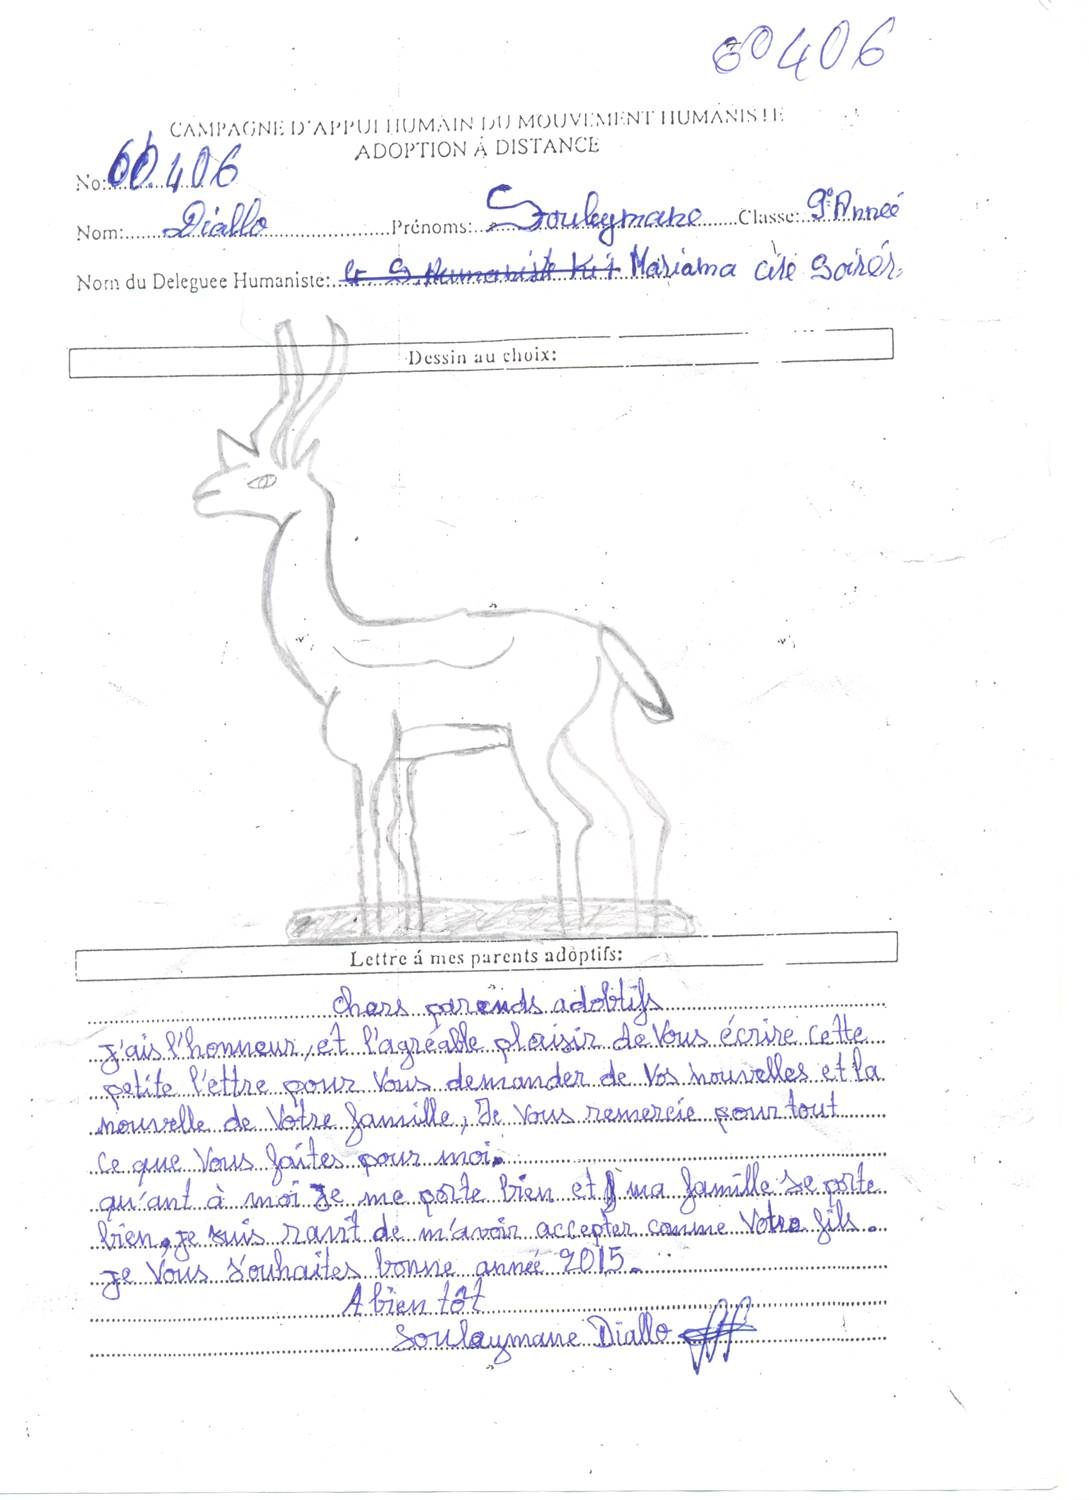 60406
CAMPAGNE D'APPUI HUMAIN DU MOUVEMENT HUMANISTE
ADOPTION À DISTANCE
No: 60.406
Nom: Diallo Prénoms: Souleymane Classe: 9e Anneé
Nom du Deleguee Humaniste: Mariama ciré
Dessin au choix:
Lettre á mes parents adoptifs:
chers parends adobtifs
J'ais l'honneur, et l'agréable plaisir de Vous écrire cette
petite l'ettre pour Vous demander de Vos nouvelles et la
nouvelle de Votre famille, Je Vous remercie pour tout
ce que Vous faites pour moi.
qu'ant à moi Je me porte bien et ma famille se porte
bien, je suis ravit de m'avoir accepter comme Votre fils.
je Vous s'ouhaites bonne année 2015.
A bien tôt
Souleymane Diallo